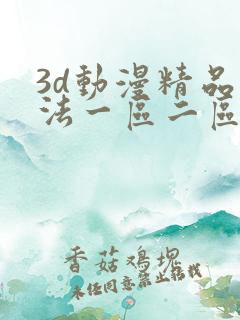 3d動漫精品
法一區二區
香菇鸡塊
未经同意禁止转载